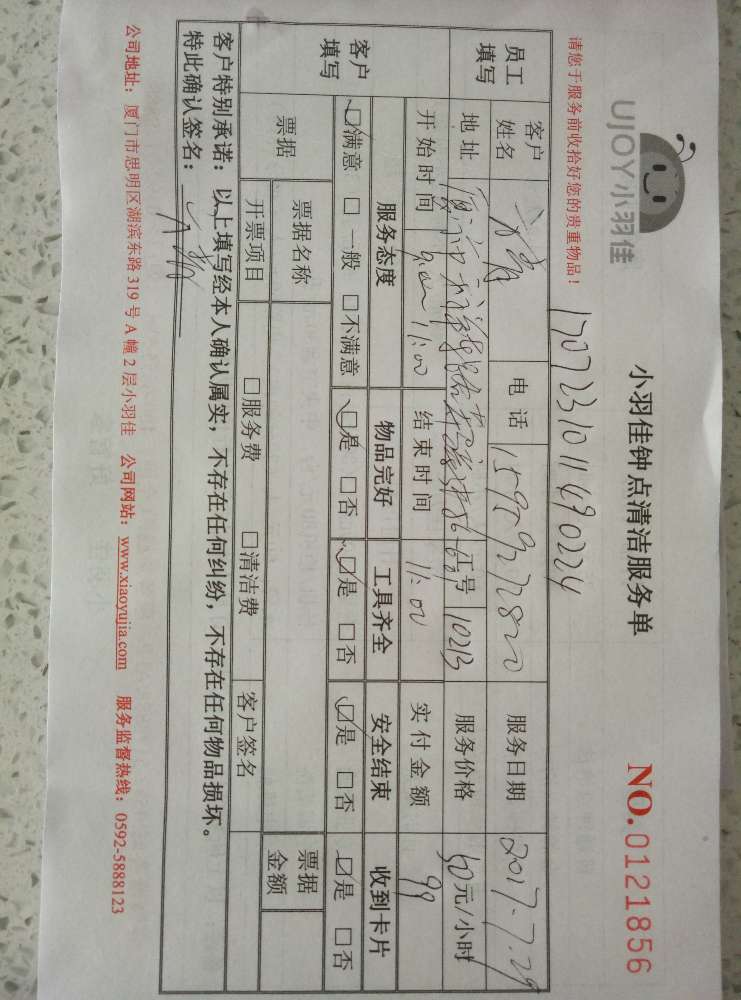 UJOY小羽佳
小羽佳钟点清洁服务单
NO.0121856
请您于服务前收拾好您的贵重物品！
1707231011490224
员工填写
客户姓名
电话 15959272820
服务日期 2017.7.29
地址
工号 10213
服务价格 50元/小时
开始时间 9:00 11:00
结束时间 11:00
实付金额 99
客户填写
服务态度 物品完好 工具齐全 安全结束 收到卡片
☑满意 □一般 □不满意 ☑是 □否 ☑是 □否 ☑是 □否 ☑是 □否
票据
票据名称
票据金额
开票项目 □服务费 □清洁费 客户签名
客户特别承诺：以上填写经本人确认属实，不存在任何纠纷，不存在任何物品损坏。
特此确认签名：
公司地址：厦门市思明区湖滨东路319号A幢2层小羽佳 公司网站：www.xiaoyujia.com 服务监督热线：0592-5888123